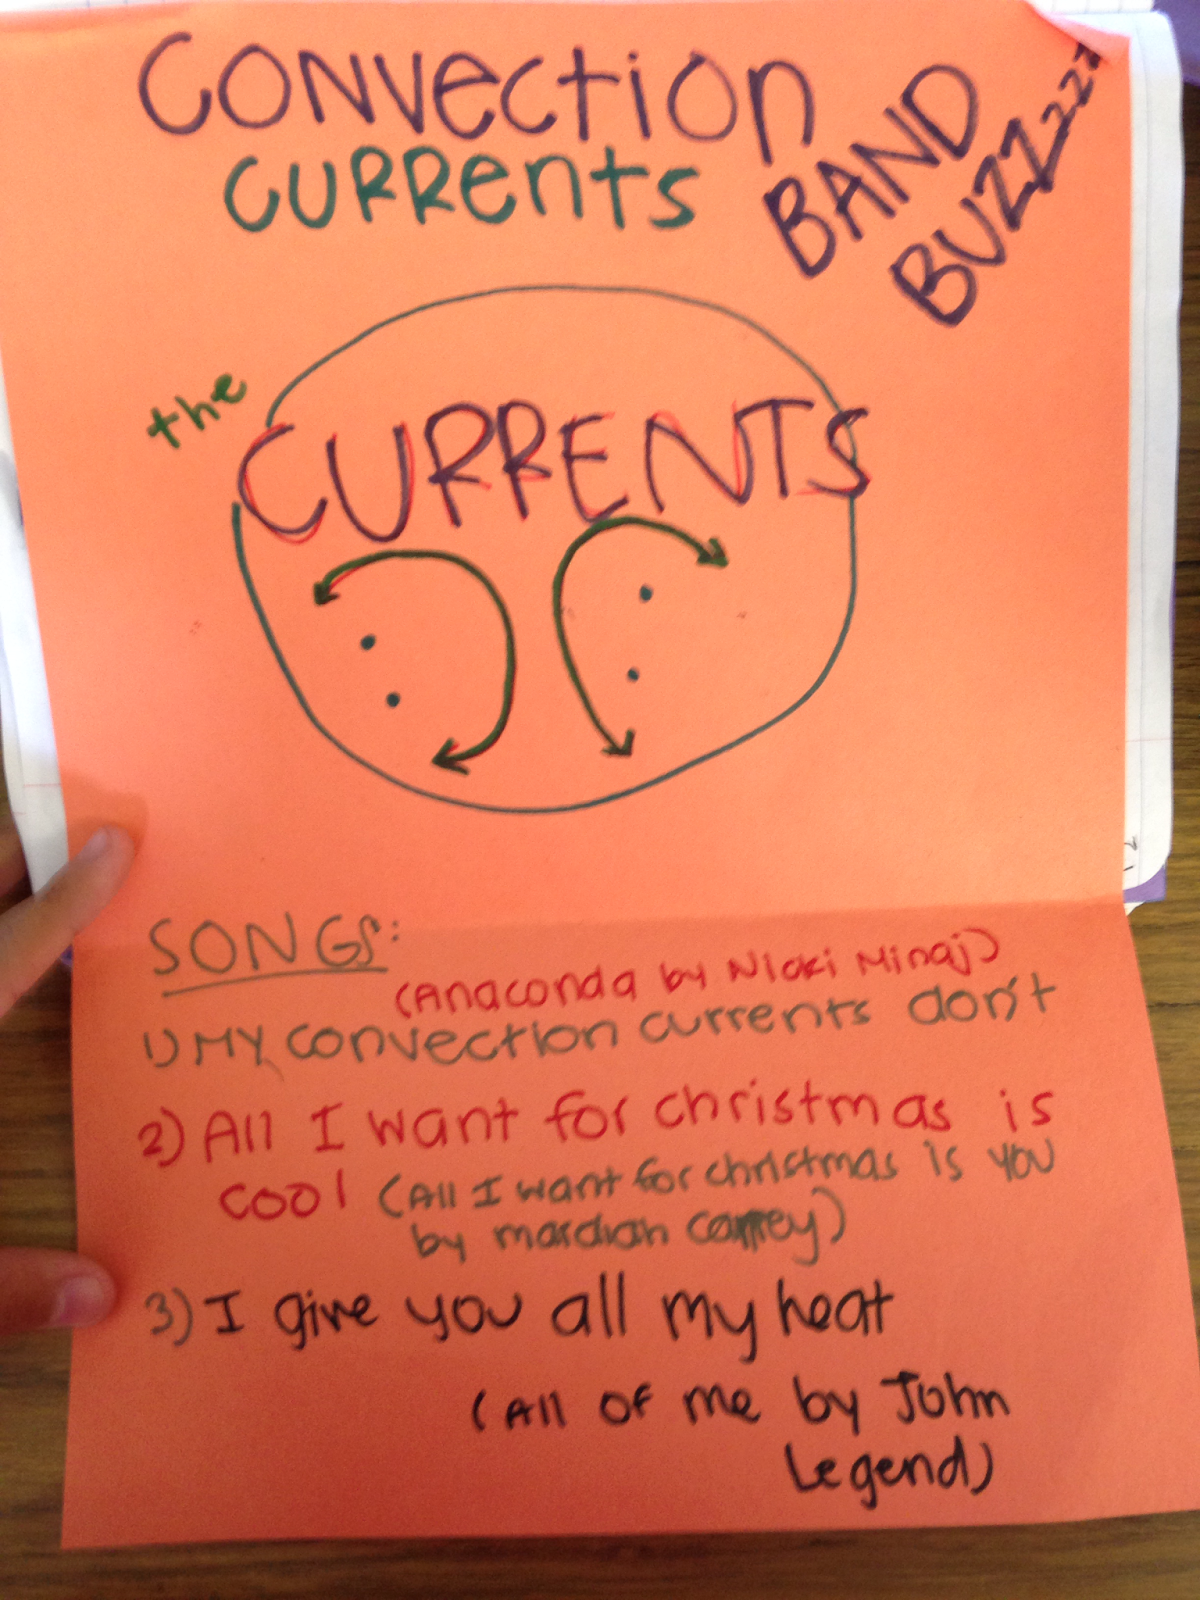 CONVection
CURRents
BAND
BUZZzzz
the
CURRENTS
SONGS:
(Anaconda by Nicki Minaj)
1) MY convection currents don't
2) All I want for christmas is
cool (All I want for christmas is you
by mardiah carrey)
3) I give you all my heat
(All of me by John
Legend)